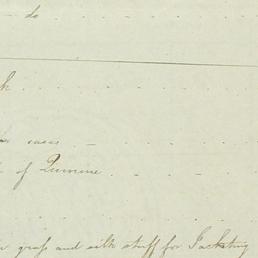 do
cases
of Quinine
grass and silk stuff for Jacketing